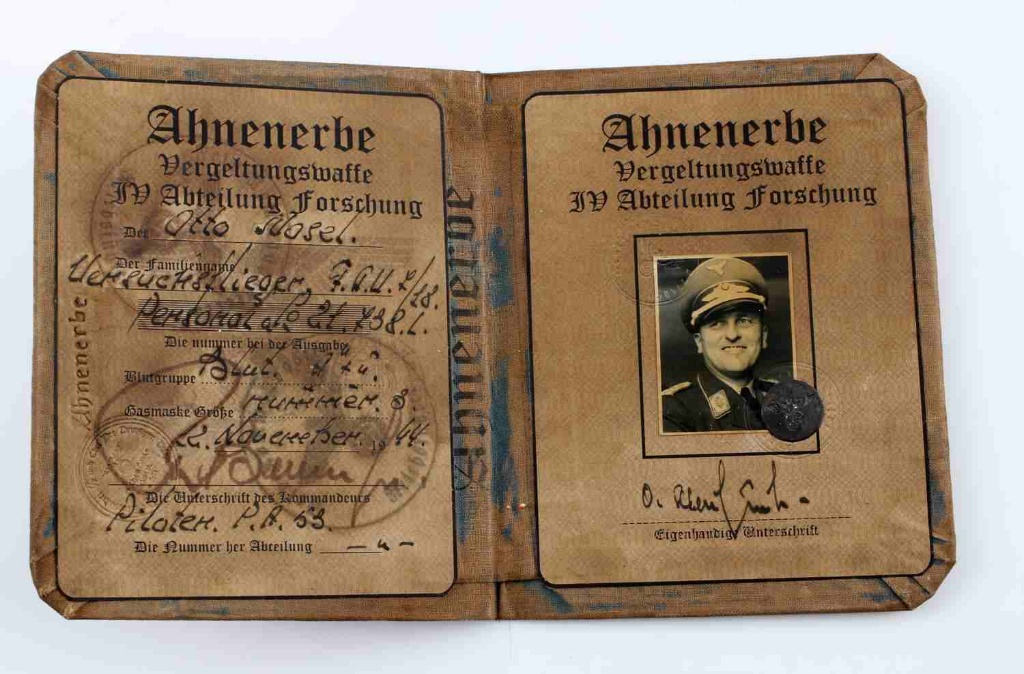 Ahnenerbe
Vergeltungswaffe
IV Abteilung Forschung
Der Otto Mosel.
Der Familienname
Versuchsflieger. F.A.U. 7/18.
Personal № 21.738.L.
Die nummer bei der Ausgabe
Blutgruppe Blut.
Gasmaske Größe nummer 3.
12. November. 1944.
Die Unterschrift des Kommandeurs
Piloten. P.A. 53.
Die Nummer her Abteilung
Ahnenerbe
Ahnenerbe
Ahnenerbe
Vergeltungswaffe
IV Abteilung Forschung
O.
Eigenhandige Unterschrift